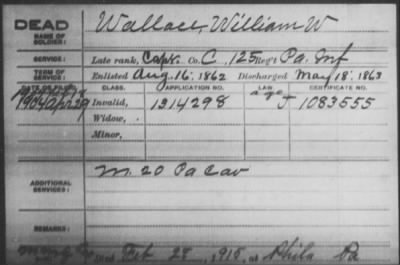 DEAD
NAME OF SOLDIER: Wallace, William W
SERVICE: Late rank, Capt. Co. C, 125 Reg't Pa. Inf
TERM OF SERVICE: Enlisted Aug. 16, 1862 Discharged May 18, 1863
DATE OF FILING. CLASS. APPLICATION NO. LAW CERTIFICATE NO.
1904 Apr 29 Invalid, 1314298 age J 1083555
Widow,
Minor,
ADDITIONAL SERVICES: M. 20 Pa Cav
REMARKS:
Died Feb 28, 1915, at Phila Pa